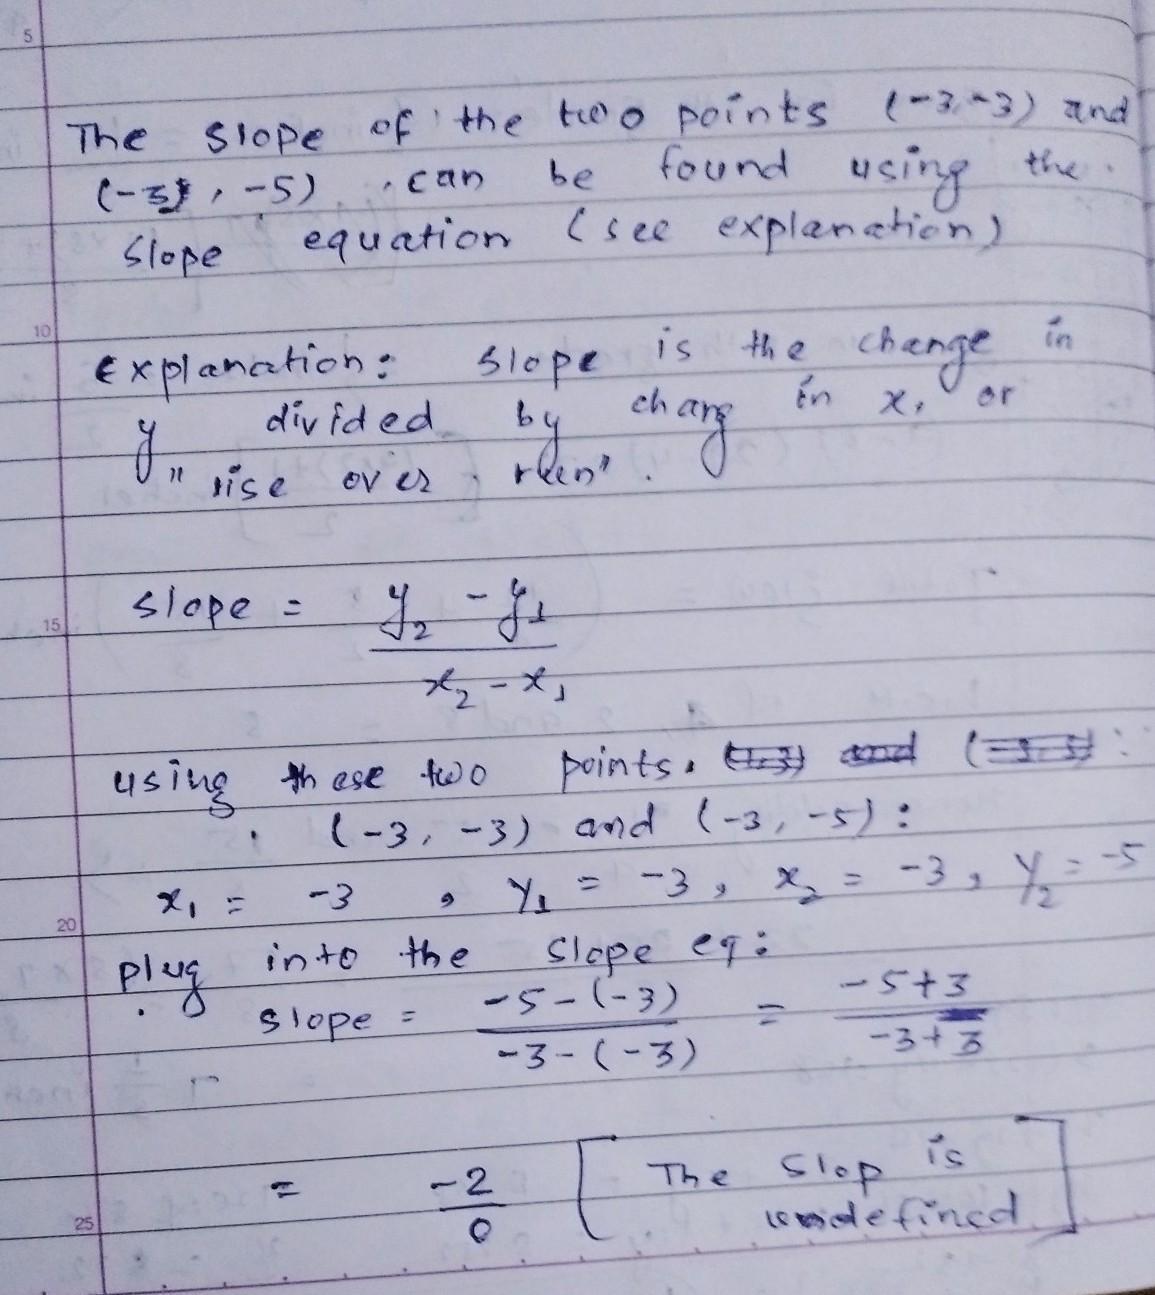 5
The slope of the two points (-3,-3) and
(-3, -5) can be found using the
slope equation (see explanation)
10
Explanation: Slope is the change in
y divided by chang in x, or
"rise over run".
slope = y₂ - y₁
15
x₂ - x₁
using these two points. and
(-3, -3) and (-3, -5):
x₁ = -3 , y₁ = -3, x₂ = -3, y₂ = -5
20
plug into the slope eq:
slope = -5-(-3) = -5+3
-3-(-3) -3+3
= -2 [ The Slop is
25
0 undefined ]